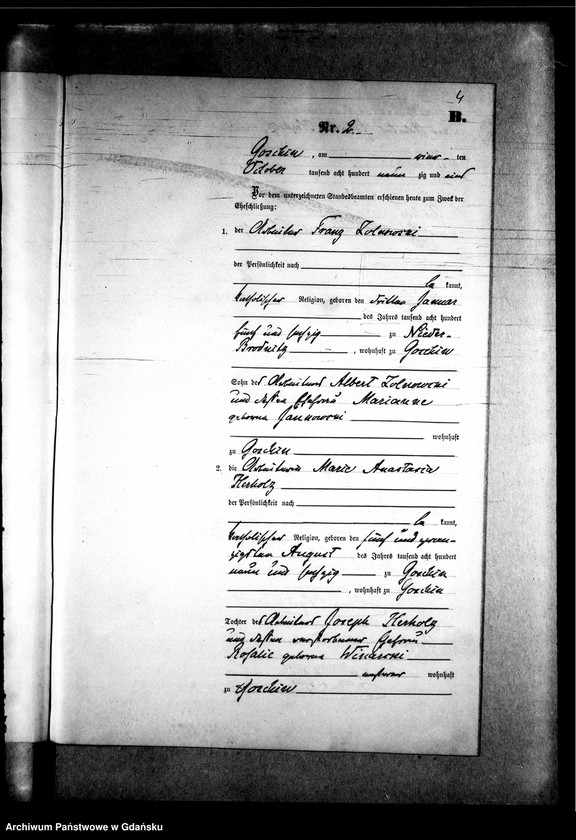 4
B.
Nr. 2.
Goschin, am ten
October tausend acht hundert neun zig und eins
Vor dem unterzeichneten Standesbeamten erschienen heute zum Zweck der
Eheschließung:
1. der Arbeiter Franz Zolnowski
der Persönlichkeit nach
be kannt,
katholischer Religion, geboren den dritten Januar
des Jahres tausend acht hundert
fünf und sechzig zu Nieder-
Brodnitz, wohnhaft zu Goschin
Sohn des Arbeiters Albert Zolnowski
und dessen Ehefrau Marianne
geborene Jannowski
wohnhaft
zu Goschin
2. die Arbeiterin Marie Anastasia
Herholz
der Persönlichkeit nach
be kannt,
katholischer Religion, geboren den fünf und zwan-
zigsten August des Jahres tausend acht hundert
neun und sechzig zu Goschin
, wohnhaft zu Goschin
Tochter des Arbeiters Joseph Herholz
und dessen verstorbenen Ehefrau
Rosalie geborene Winarski
ersterer wohnhaft
zu Goschin
Archiwum Państwowe w Gdańsku